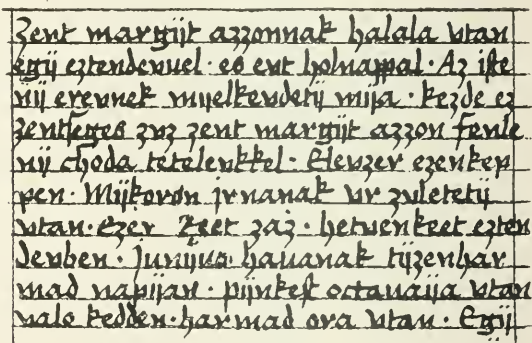 Zent margijt azzonnak halala vtan
egij eztendevuel · es eut holnappal · Az iste
nij erevnek mijelkevdetij mija · kezde ez
zentseges zvz zent margijt azzon fenle
nij choda tetelenkkel · Elevzer ezenkep
pen · Mijkoron jrnanak vr zvletetij
vtan · ezer keet zaz · hetuenkeet ezten
devben · junijus hauanak tijzenhar
mad napijan · pijnkest octauaija vtan
valo kedden · harmad ora vtan · Egij